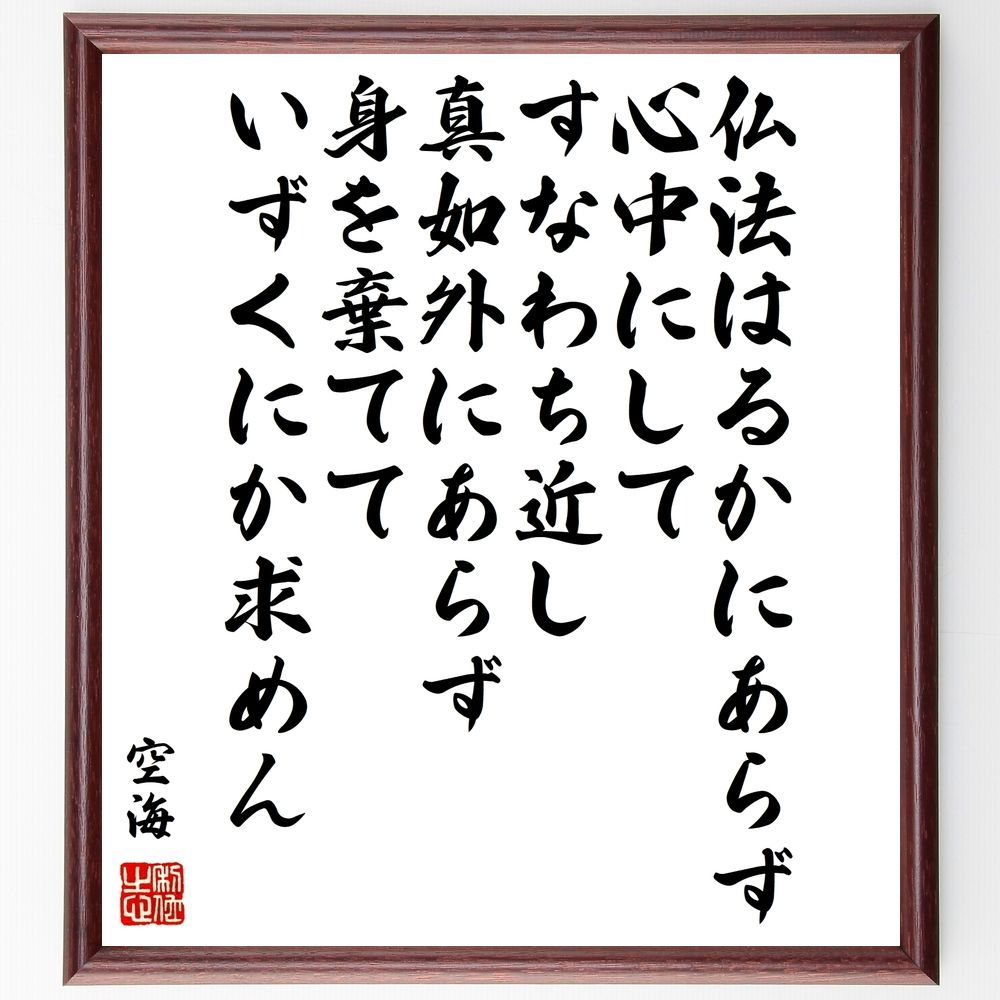 仏法はるかにあらず
心中にして
すなわち近し
真如外にあらず
身を棄てて
いずくにか求めん
空海